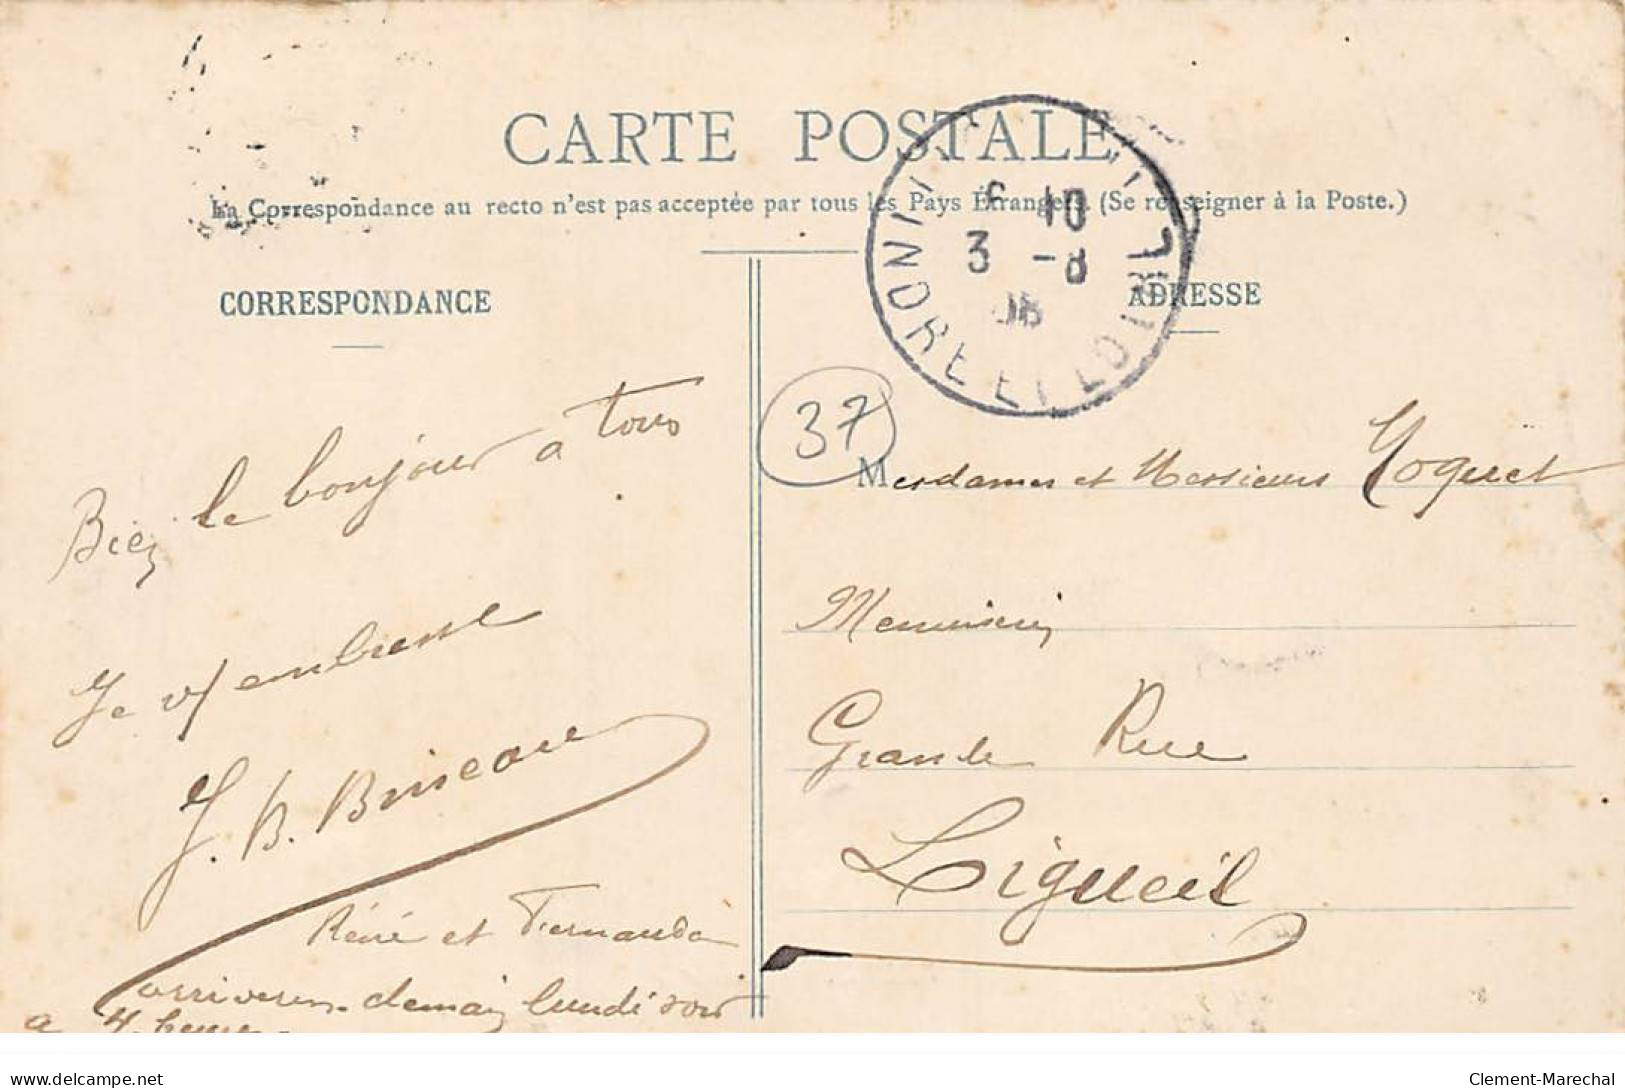 CARTE POSTALE
La Correspondance au recto n'est pas acceptée par tous les Pays Étrangers. (Se renseigner à la Poste.)
CORRESPONDANCE
ADRESSE
10
3 -8
INDRE ET LOIRE
37
Bien le bonjour a tous
Je v/ embrasse
J. B. Bruneau
Réné et Fernanda
arriveron demain lundi soir
a 4 heures
Mesdames et Messieurs Moquet
Menuisier
Grande Rue
Ligueil
delcampe.net
Clement-Marechal